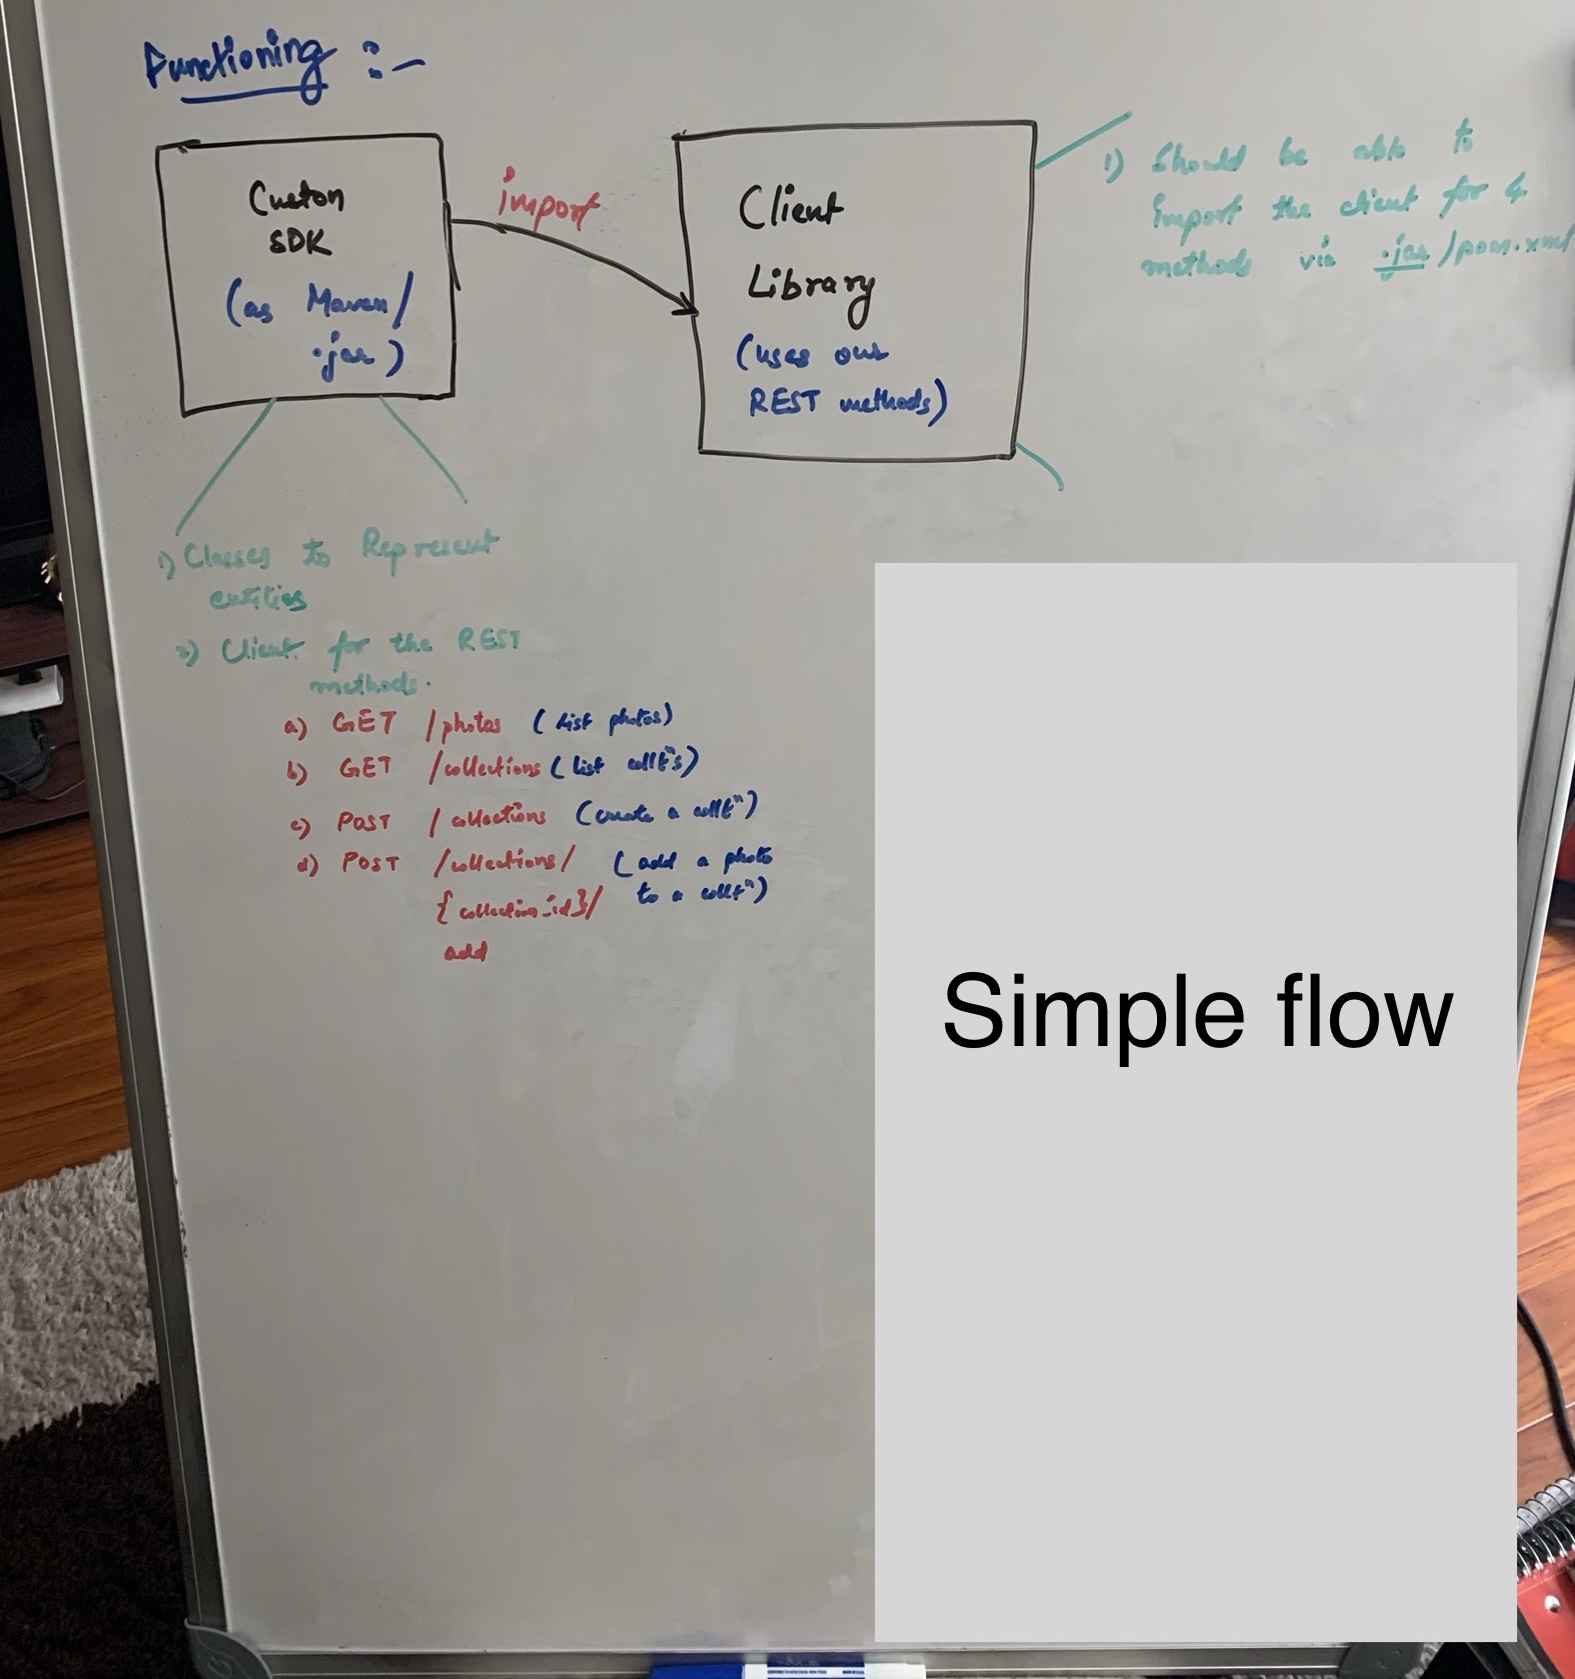 Functioning :-
Custon
SDK
(as Maven/
.jar)
import
Client
Library
(uses our
REST methods)
1) Should be able to
import the client for 4
methods via .jar/pom.xml
1) Classes to Represent
entities
2) Client for the REST
methods.
a) GET /photos (list photos)
b) GET /collections (list collt"s)
c) POST /collections (create a collt")
d) POST /collections/ (add a photo
{collection_id}/ to a collt")
add
Simple flow